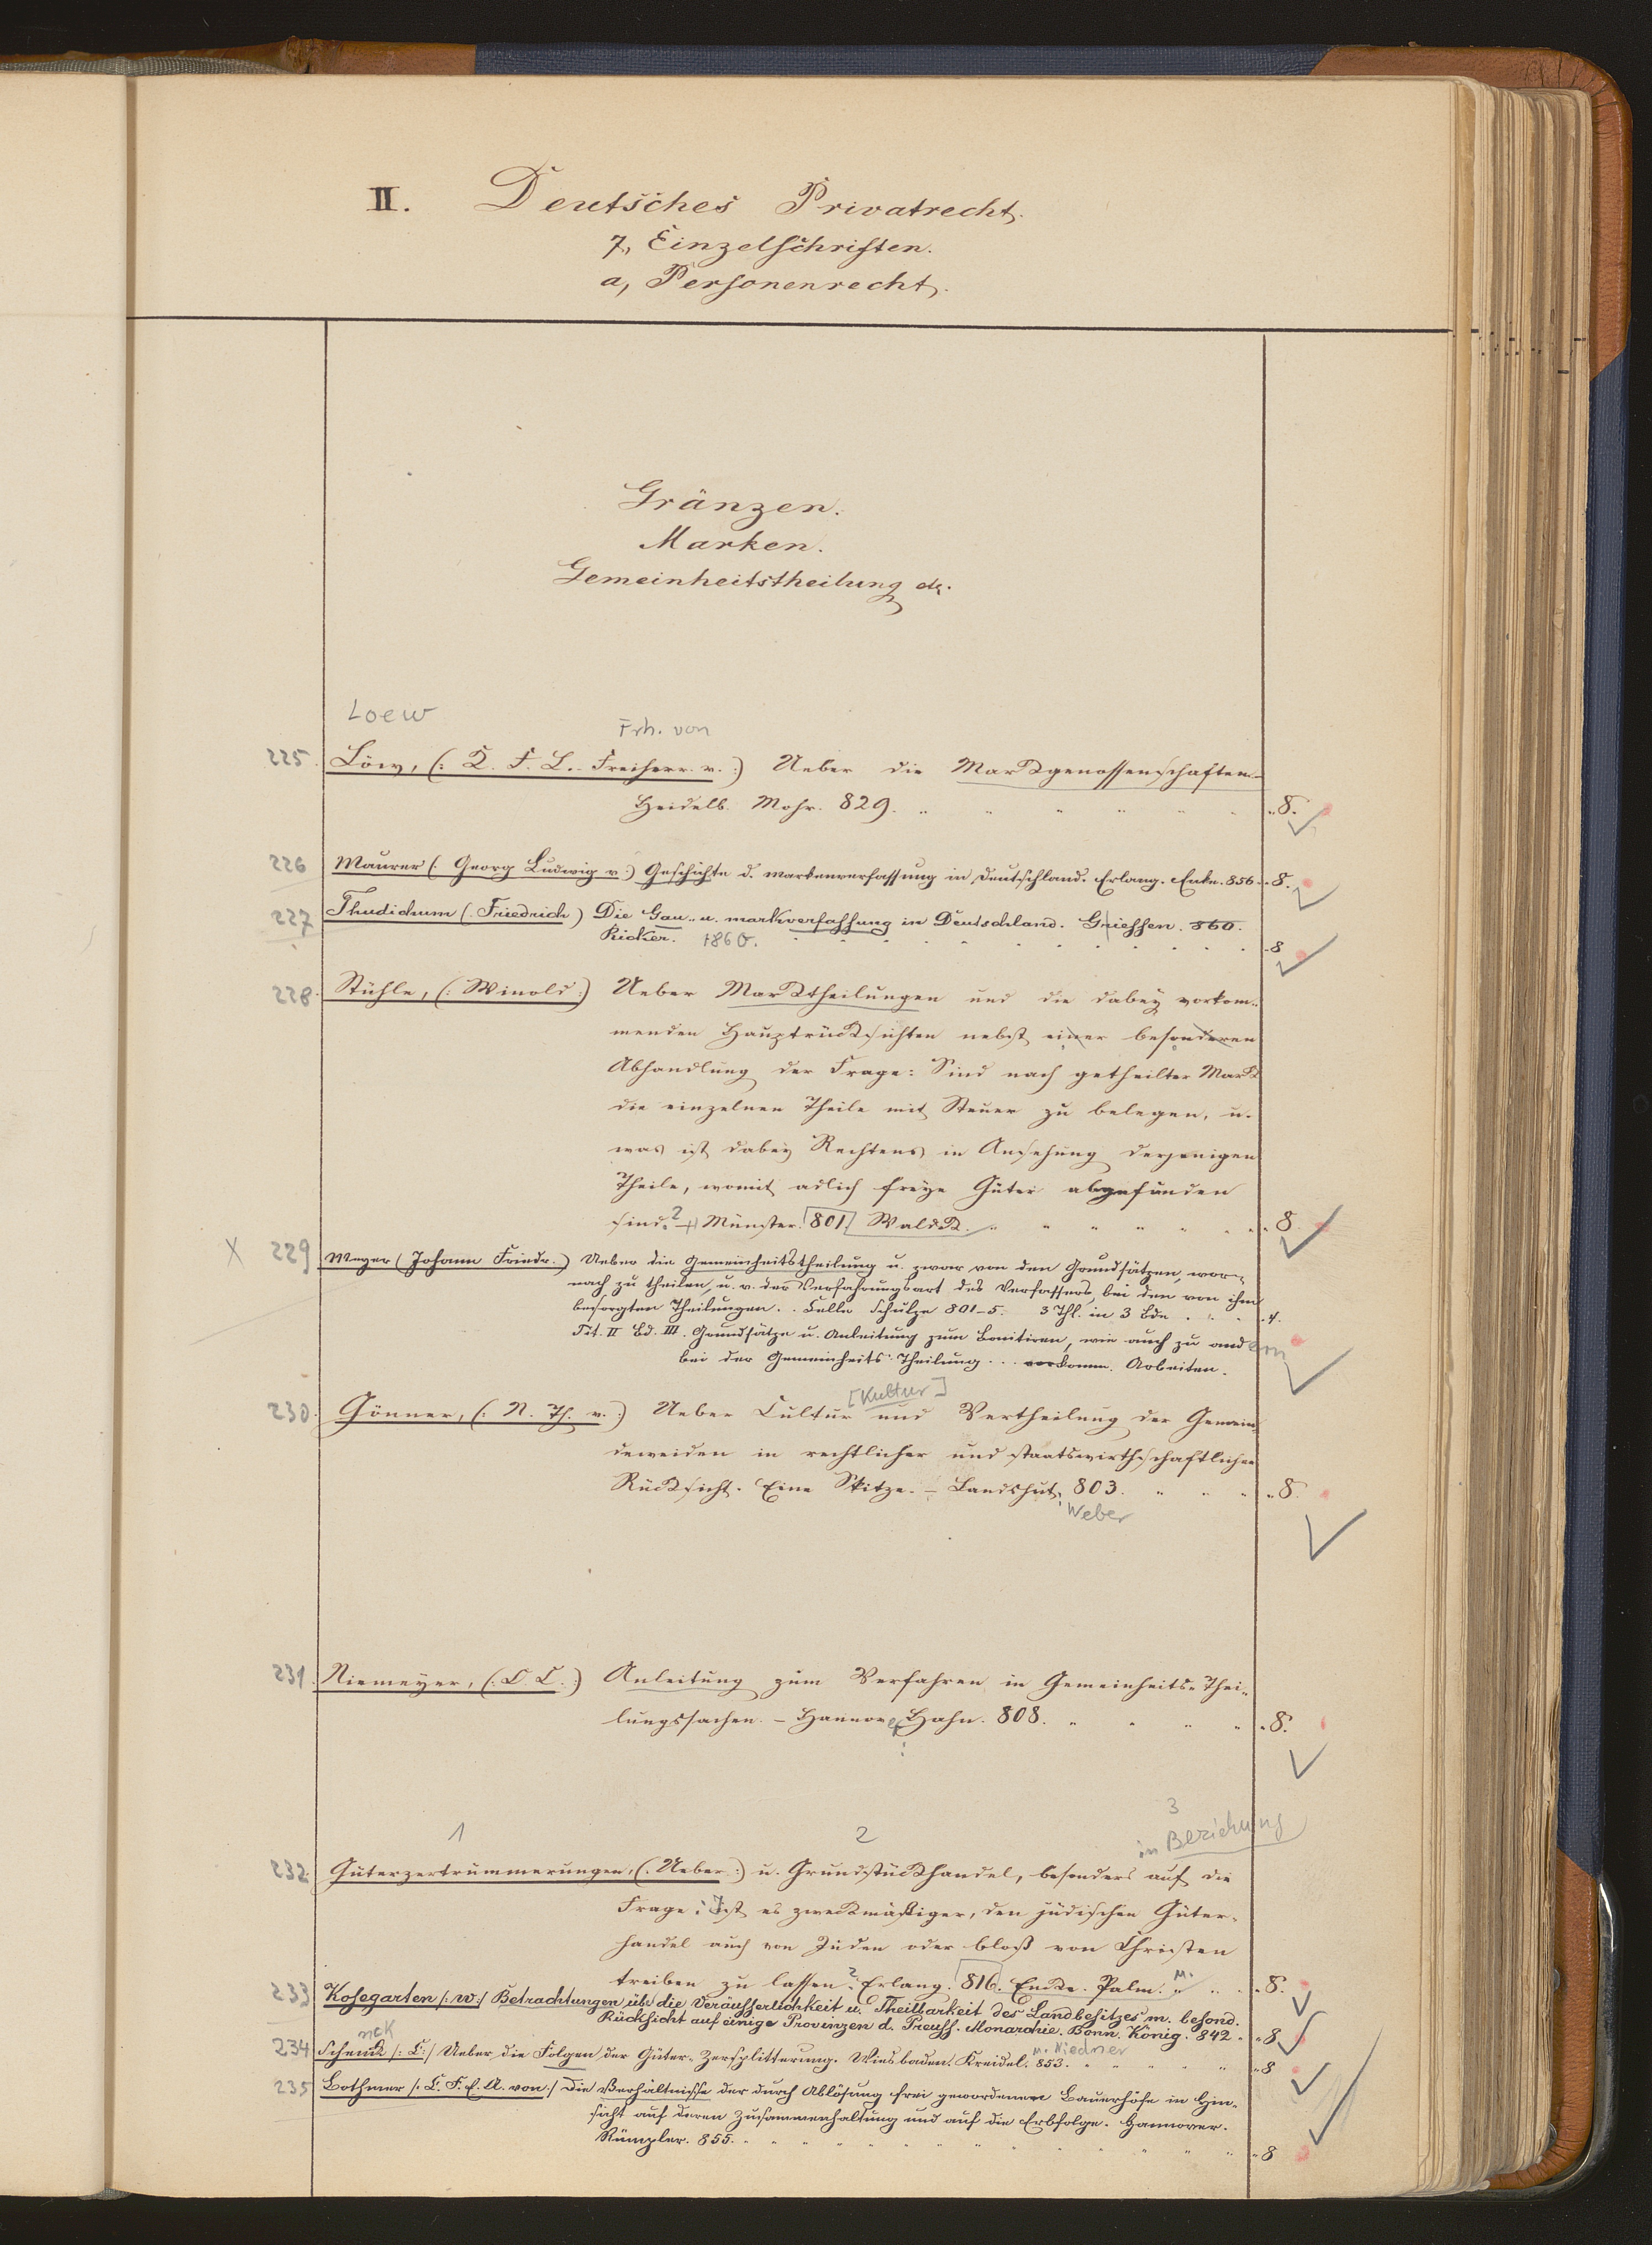 II. Deutsches Privatrecht.
7, Einzelschriften.
a, Personenrecht.
Gränzen.
Marken.
Gemeinheitstheilung etc.
Loew
Frh. von
225. Löw, (: K. F. L. Freiherr v. :) Ueber die Markgenossenschaften.
Heidelb. Mohr. 829. 8.
226 Maurer (: Georg Ludwig v.) Geschichte d. Markenverfassung in Deutschland. Erlang. Enke. 856. 8.
227 Thudichum (: Friedrich) Die Gau- u. Markverfassung in Deutschland. Griessen. 860.
Ricker. 1860. 8
228. Stühle, (: Winold :) Ueber Marktheilungen und die dabey vorkom-
menden Hauptrücksichten nebst einer besonderen
Abhandlung der Frage: Sind nach getheilter Mark
die einzelnen Theile mit Steuer zu belegen, u.
was ist dabey Rechtens in Ansehung derjenigen
Theile, womit adlich freye Güter abgefunden
sind? Münster. 801. Waldek. 8.
X 229 Meyer (Johann Friedr.) Ueber die Gemeinheitstheilung u. zwar von den Grundsätzen, wor-
nach zu theilen, u. v. der Verfahrungsart des Verfassers, bei den von ihm
besorgten Theilungen. Celle Schulze 801-5. 3 Thl. in 3 Bde. 4.
Tit. II Bd. III. Grundsätze u. Anleitung zum Bonitiren, wie auch zu and ern
bei der Gemeinheits-Theilung ... vorkomm. Arbeiten.
[Kultur]
230. Gönner, (: N. Th. v. :) Ueber Cultur und Vertheilung der Gemein-
deweiden in rechtlicher und staatswirthschaftlicher
Rücksicht. Eine Skitze. - Landshut, 803. 8.
Weber
231. Niemeyer, (: C. C. :) Anleitung zum Verfahren in Gemeinheits-Thei-
lungssachen. - Hannover Hahn. 808. 8.
1 2 3
in Beziehung
232. Güterzertrümmerungen, (: Ueber :) u. Grundstückhandel, besonders auf die
Frage: Ist es zweckmäßiger, den jüdischen Güter-
handel auch von Juden oder bloß von Christen
treiben zu lassen? Erlang. 816. Enke. Palm. 8.
233 Kosegarten /: W :/ Betrachtungen üb. die Veräusserlichkeit u. Theilbarkeit des Landbesitzes m. besond.
Rücksicht auf einige Provinzen d. Preuss. Monarchie. Bonn. König. 842. 8
nck
u. Niedner
234 Schenck /: C :/ Ueber die Folgen der Güter-Zersplitterung. Wiesbaden. Kreidel. 853. 8
235 Bothmer /: C. F. E. A. von :/ Die Verhältnisse der durch Ablösung frei gewordenen Bauerhöfe in Hin-
sicht auf deren Zusammenhaltung und auf die Erbfolge. Hannover.
Rümpler. 855. 8